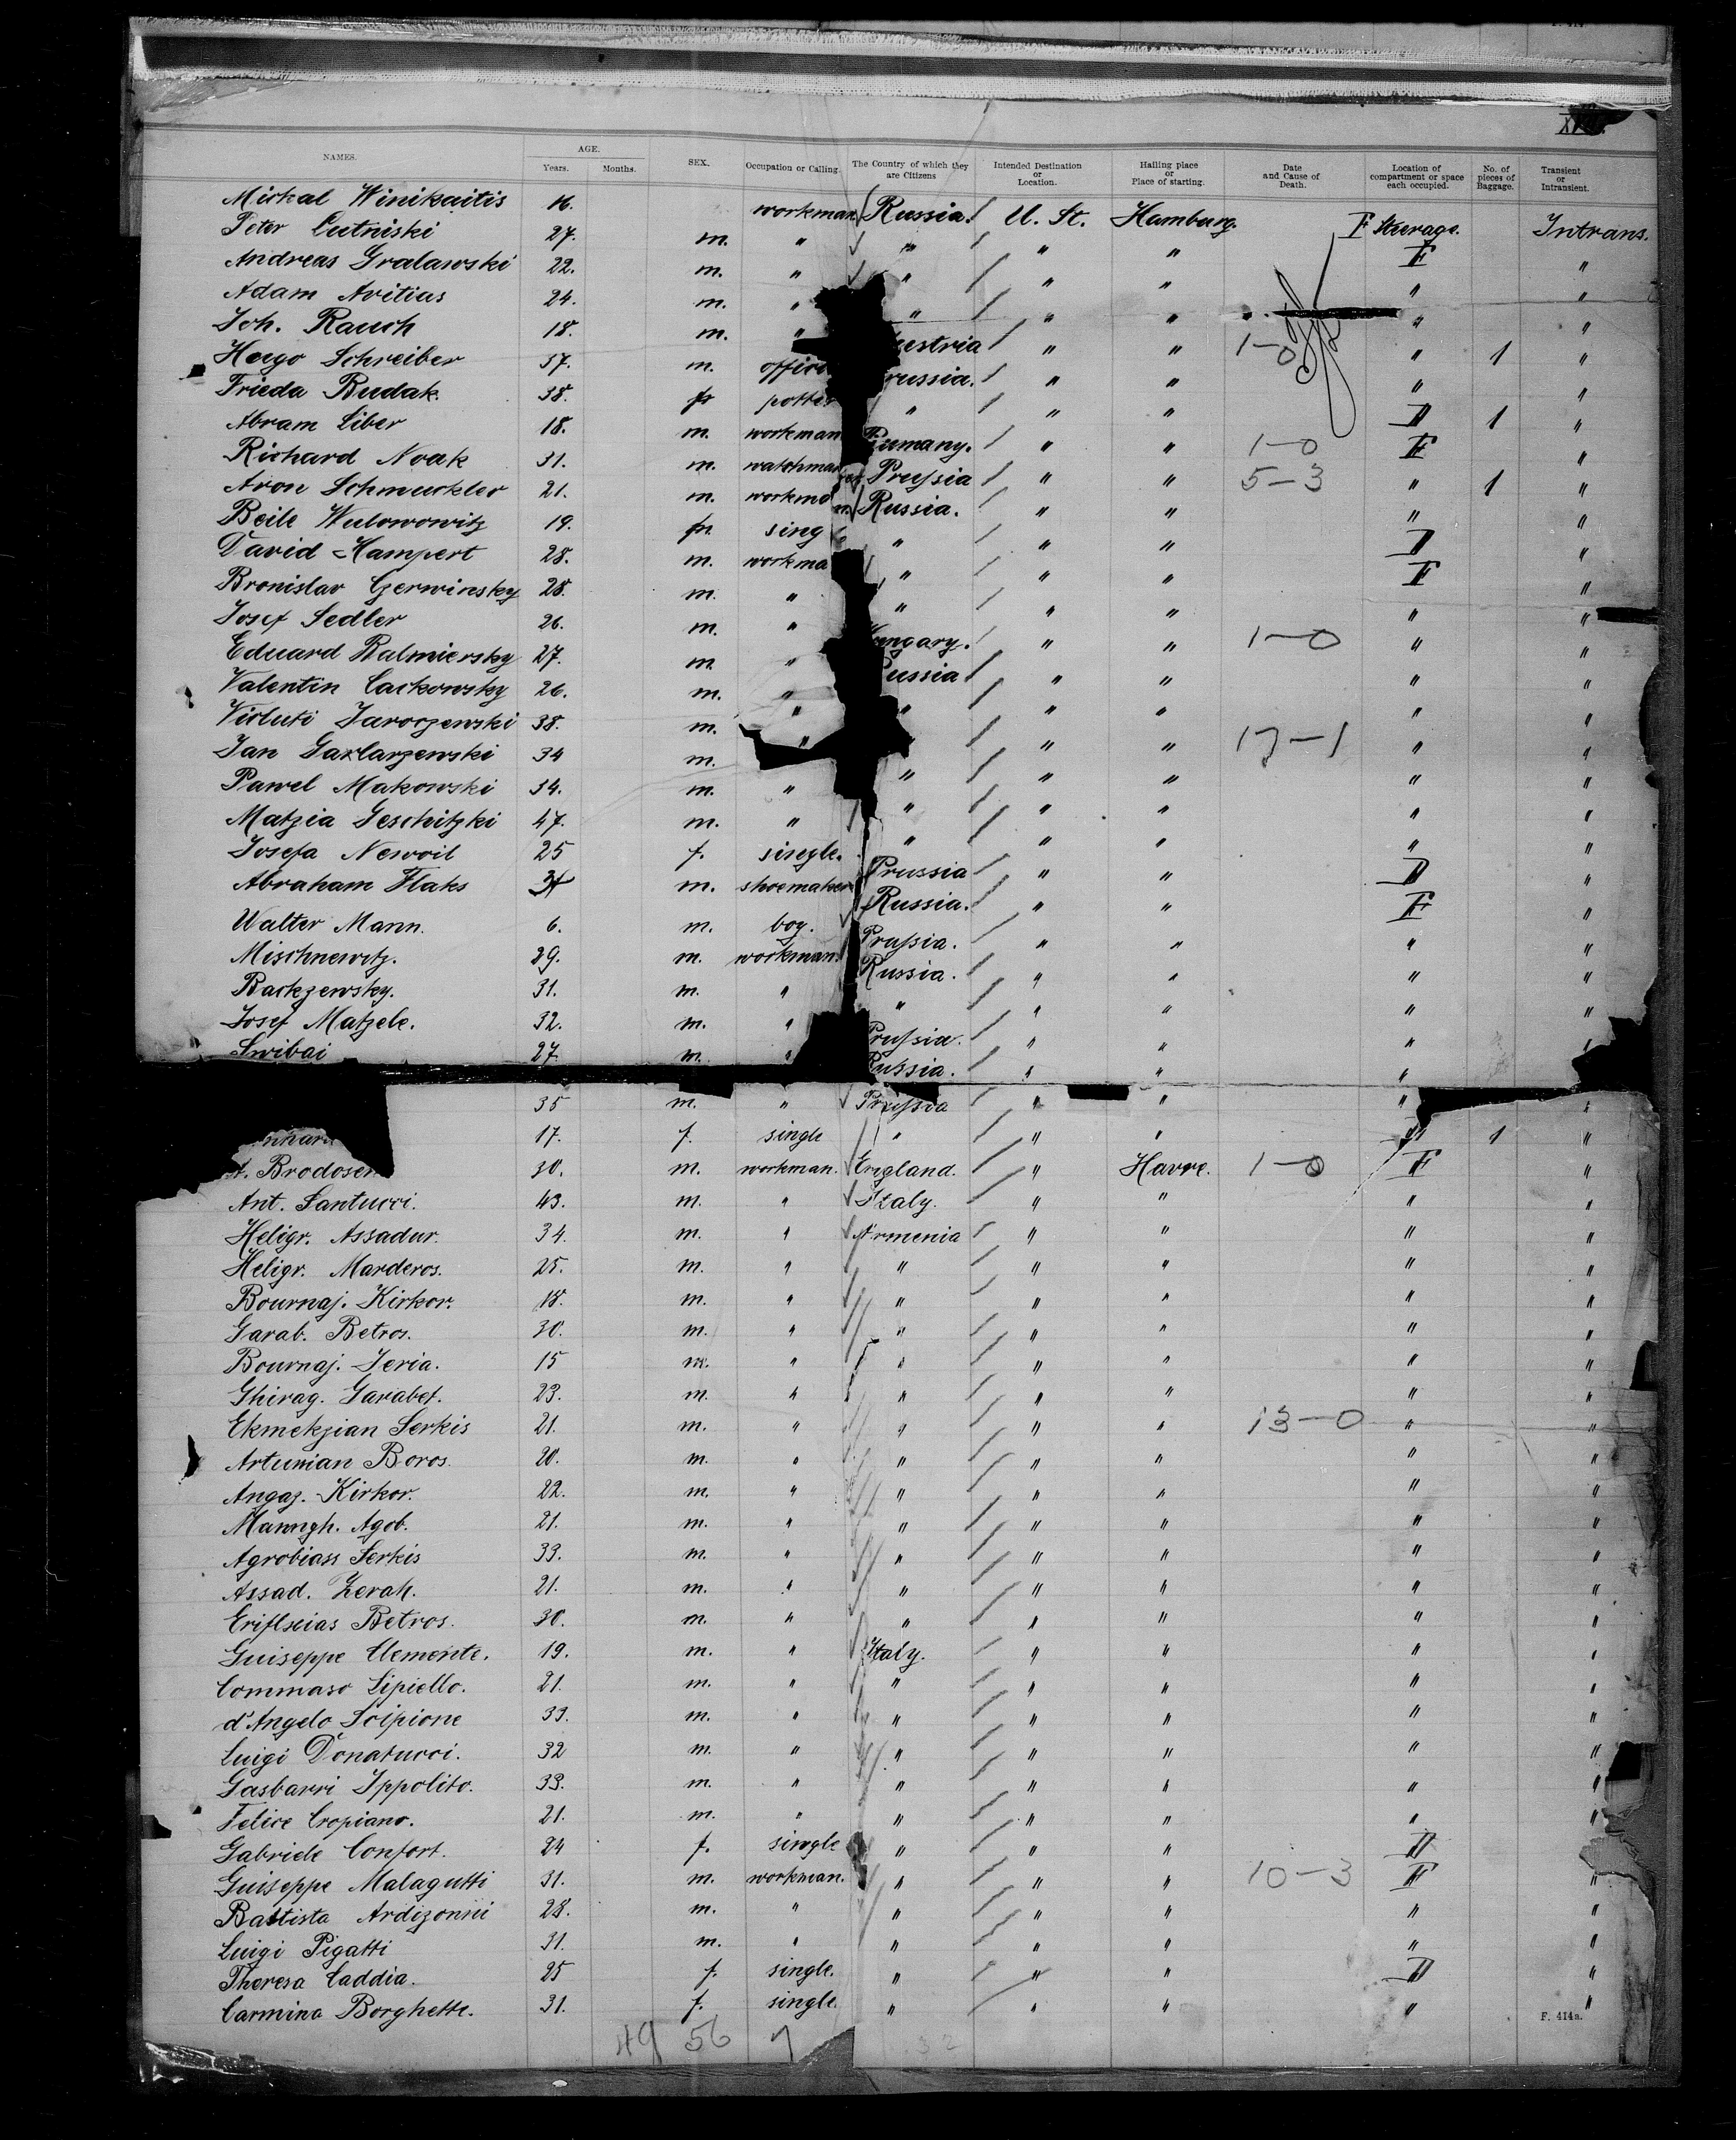 XVIII.
NAMES. AGE. Years. Months. SEX. Occupation or Calling. The Country of which they are Citizens Intended Destination or Location. Hailing place or Place of starting. Date and Cause of Death. Location of compartment or space each occupied. No. of pieces of Baggage. Transient or Intransient.
Michal Winiksaitis 16. workman Russia. U. St. Hamburg. F Steerage. Intrans.
Peter Lutniski 27. m. " " " " F "
Andreas Gralawski 22. m. " " " " " "
Adam Avitius 24. m. " " " " " "
Joh. Rauch 18. m. " ustria " " 1-0 " 1 "
Hugo Schreiber 37. m. offic russia. " " " "
Frieda Budak. 38. f. potter " " " D 1 "
Abram Liber 18. m. workman Rumany. " " 1-0 F "
Richard Noak 31. m. watchman Prussia " " 5-3 " 1 "
Aron Schmuckler 21. m. workman Russia. " " " "
Beile Wulowowitz 19. f. sing " " " D "
David Hampert 28. m. workma " " " F "
Bronislav Czerwinsky 28. m. " " " " " "
Josef Sedler 26. m. " ungary. " " 1-0 " "
Eduard Balmiersky 27. m. " ussia " " " "
Valentin Cackowsky 26. m. " " " " " "
Violuti Jaroczewski 38. m. " " " " 17-1 " "
Jan Gaxlarzewski 34 m. " " " " "
Pawel Makowski 34. m. " " " " " "
Matzia Geschitzki 47. m. " " " " " "
Josefa Newoil 25 f. single. Prussia " " D "
Abraham Flaks m. shoemaker Russia. " " F "
Walter Mann. 6. m. boy. Prussia. " " " "
Mischnewitz. 29. m. workman. Russia. " " " "
Backzewsky. 31. m. " " " " " "
Josef Matzele. 32. m. " Prussia. " " " "
Swibai 27. m. " Russia. " " " "
35 m. " Prussia " " " "
17. f. single " " " 1 "
A. Brodosen 30. m. workman. England. " Havre. 1-0 F "
Ant. Santucci. 43. m. " Italy. " " " "
Heligr. Assadur. 34. m. " Armenia " " " "
Heligr. Marderos. 25. m. " " " " " "
Bournaj. Kirkor. 18. m. " " " " " "
Garab. Betros. 30. m. " " " " " "
Bournaj. Jeria. 15 m. " " " " " "
Ghirag. Garabet. 23. m. " " " " " "
Ekmekzian Serkis 21. m. " " " " 13-0 " "
Artunian Boros. 20. m. " " " " " "
Angaz. Kirkor. 22. m. " " " " " "
Manngh. Agob. 21. m. " " " " " "
Agrobiass Serkis 33. m. " " " " " "
Assad. Zerah. 21. m. " " " " " "
Eriflscias Betros. 30. m. " " " " " "
Guiseppe Clemente. 19. m. " Italy. " " " "
Commaso Sipiello. 21. m. " " " " " "
d'Angelo Scipione 33. m. " " " " " "
Luigi Donatucci. 32 m. " " " " " "
Gasbarri Ippolito. 33. m. " " " " " "
Felice Cropiano. 21. m. " " " " " "
Gabriele Confort. 24 f. single " " " D
Guiseppe Malagutti 31. m. workman. " " " 10-3 F "
Battista Ardizonni 28. m. " " " " " "
Luigi Pigatti 31. m. " " " " " "
Theresa Caddia. 25 f. single. " " " D "
Carmina Borghette. 31. f. single. " " " " "
F. 414a.
49 56 7 32